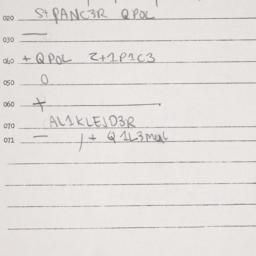 020 S+PANC3R QPOL
030 —
040 + QPOL Z+1P1C3
050 O
060 +
070 AL1KLEJD3R
071 — / + Q1L3mat